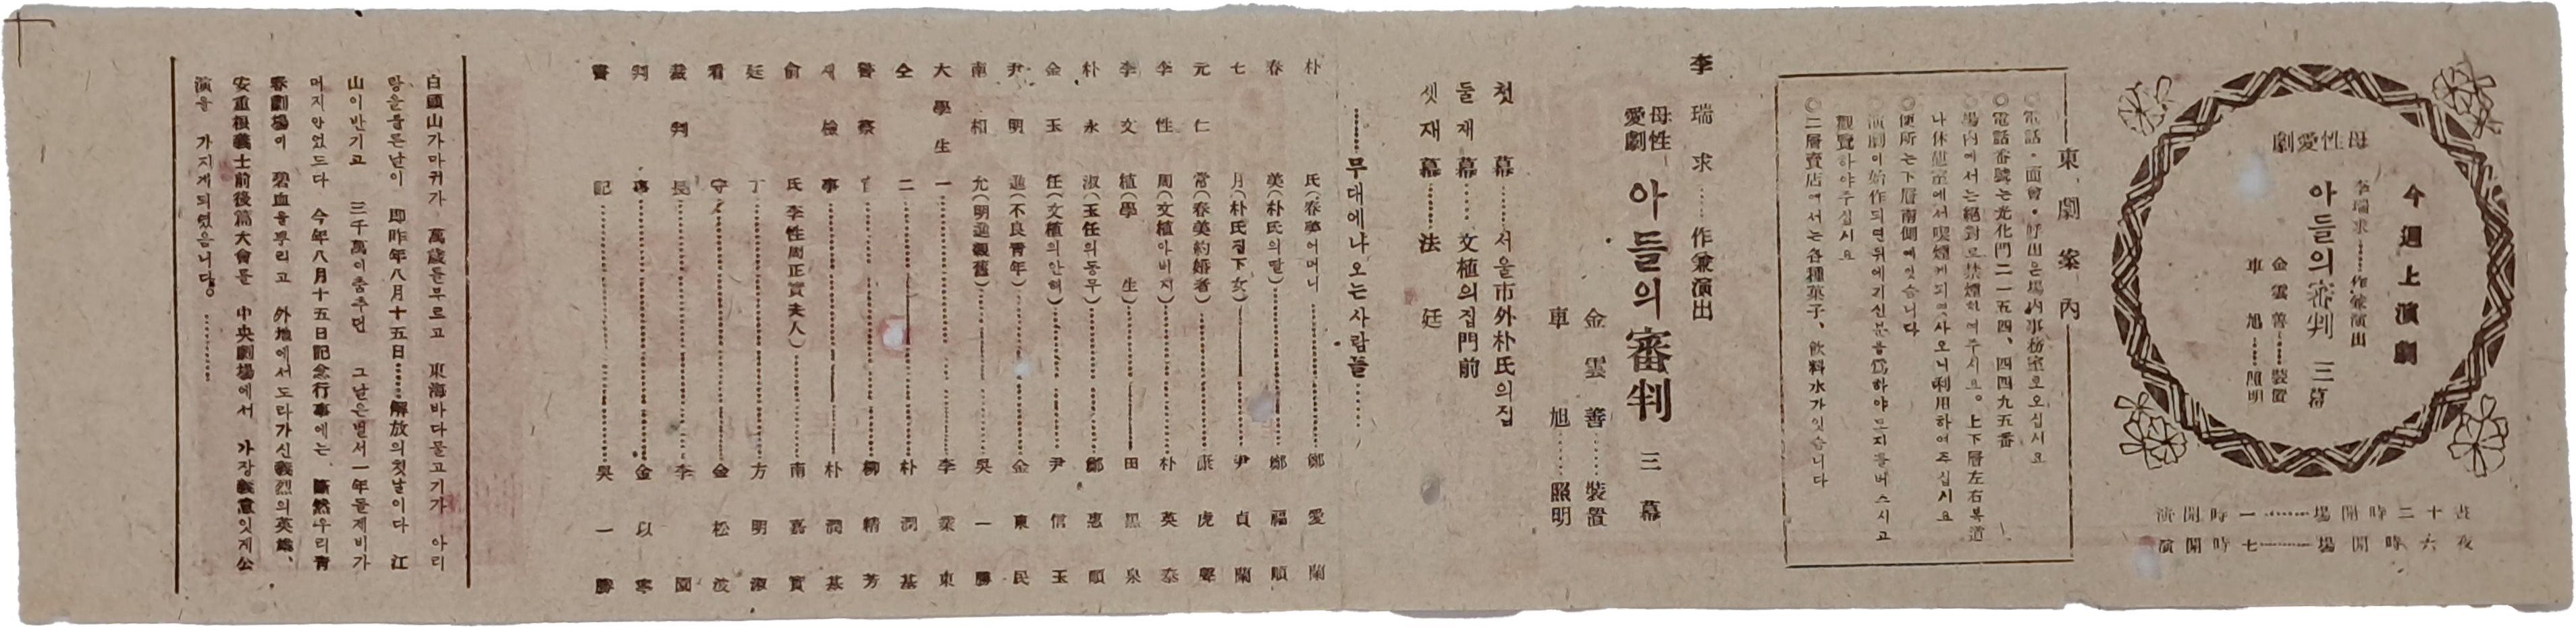 今週上演劇
母性愛劇
李瑞求……作兼演出
아들의審判 三幕
金雲善……裝置
車 旭……照明
晝 十二時開場……一時開演
夜 六時開場……七時開演
東劇案內
◎電話・面會・呼出은場內事務室로오십시요
◎電話番號는光化門二一五四、四四九五番
◎場內에서는絕對로禁煙하여주시요。上下層左右복道
나休憩室에서喫煙케되엿사오니利用하여주십시요
◎便所는下層南側에잇습니다
◎演劇이始作되면뒤에기신분을爲하야모자를버스시고
觀覽하야주십시요
◎二層賣店에서는各種菓子、飮料水가잇습니다
李瑞求……作兼演出
母性愛劇 아들의審判 三幕
金雲善……裝置
車 旭……照明
첫재幕……서울市外朴氏의집
둘재幕……文植의집門前
셋재幕……法廷
……무대에나오는사람들……
朴氏(春美어머니)……鄭愛蘭
春美(朴氏의딸)……鄭福順
七月(朴氏집下女)……尹貞蘭
元仁常(春美約婚者)……康虎聲
李性周(文植아비지)……朴英泰
李文植(學生)……田黑泉
朴永淑(玉任의동무)……鄭惠順
金玉任(文植의안해)……尹信玉
尹明進(不良靑年)……金東民
南相允(明進親舊)……吳一勝
大學生一……李業東
仝 二……朴潤基
警察官……柳精芳
檢事……朴潤基
俞氏(李性周正實夫人)……南嘉實
廷丁……方明淑
看守……金松波
裁判長……李園
判事……金以寧
書記……吳一勝
白頭山가마귀가 萬歲를부르고 東海바다물고기가 아리
랑을불른날이 即昨年八月十五日……解放의첫날이다 江
山이반기고 三千萬이춤추던 그날은벌서一年을제비가
머지안엇드다 今年八月十五日記念行事에는、斷然우리靑
春劇場이 碧血을뿌리고 外地에서도라가신義烈의英雄、
安重根義士前後篇大會를 中央劇場에서 가장義意잇게公
演을 가지게되엿음니다。……